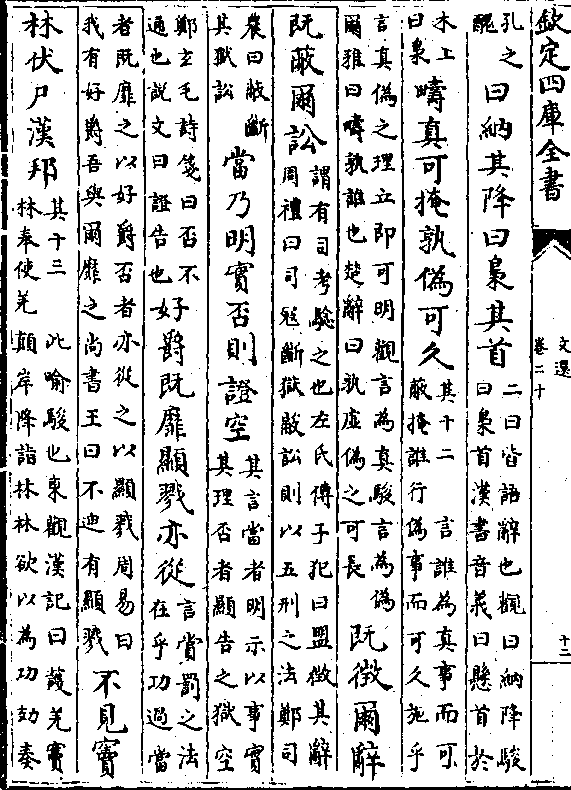 欽定四庫全書
文選
卷二十
十二
孔之
醜
曰納其降曰梟其首
二曰皆語辭也觀曰納降駿
曰梟首漢書音義曰懸首於
木上
曰梟
疇真可掩孰偽可久
其十二 言誰為真事而可
蔽掩誰行偽事而可久施乎
言真偽之理立即可明觀言為真駿言為偽
爾雅曰疇孰誰也楚辭曰孰虛偽之可長
既徵爾辭
既蔽爾訟
謂有司考驗之也左氏傳子犯曰盟徵其辭
周禮曰司寇斷獄蔽訟則以五刑之法鄭司
農曰蔽斷
其獄訟
當乃明實否則證空
其言當者明示以事實
其理否者顯告之獄空
鄭玄毛詩箋曰否不
通也說文曰證告也
好爵既靡顯戮亦從
言賞罰之法
在乎功過當
者既靡之以好爵否者亦從之以顯戮周易曰
我有好爵吾與爾靡之尚書王曰不迪有顯戮
不見竇
林伏尸漢邦
其十三 此喻駿也東觀漢記曰護羌竇
林奉使羌顛岸降詣林林欲以為功効奏